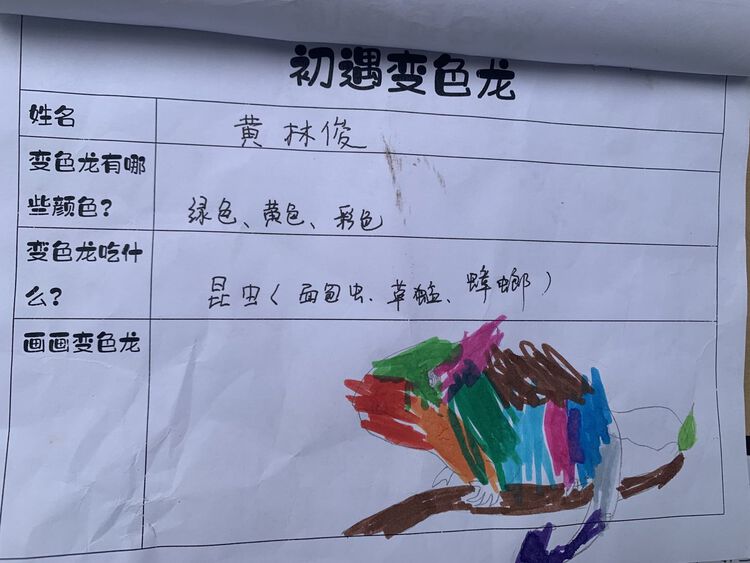 初遇变色龙
姓名
黄林俊
变色龙有哪
些颜色？
绿色、黄色、彩色
变色龙吃什
么？
昆虫（面包虫、草蜢、蟑螂）
画画变色龙